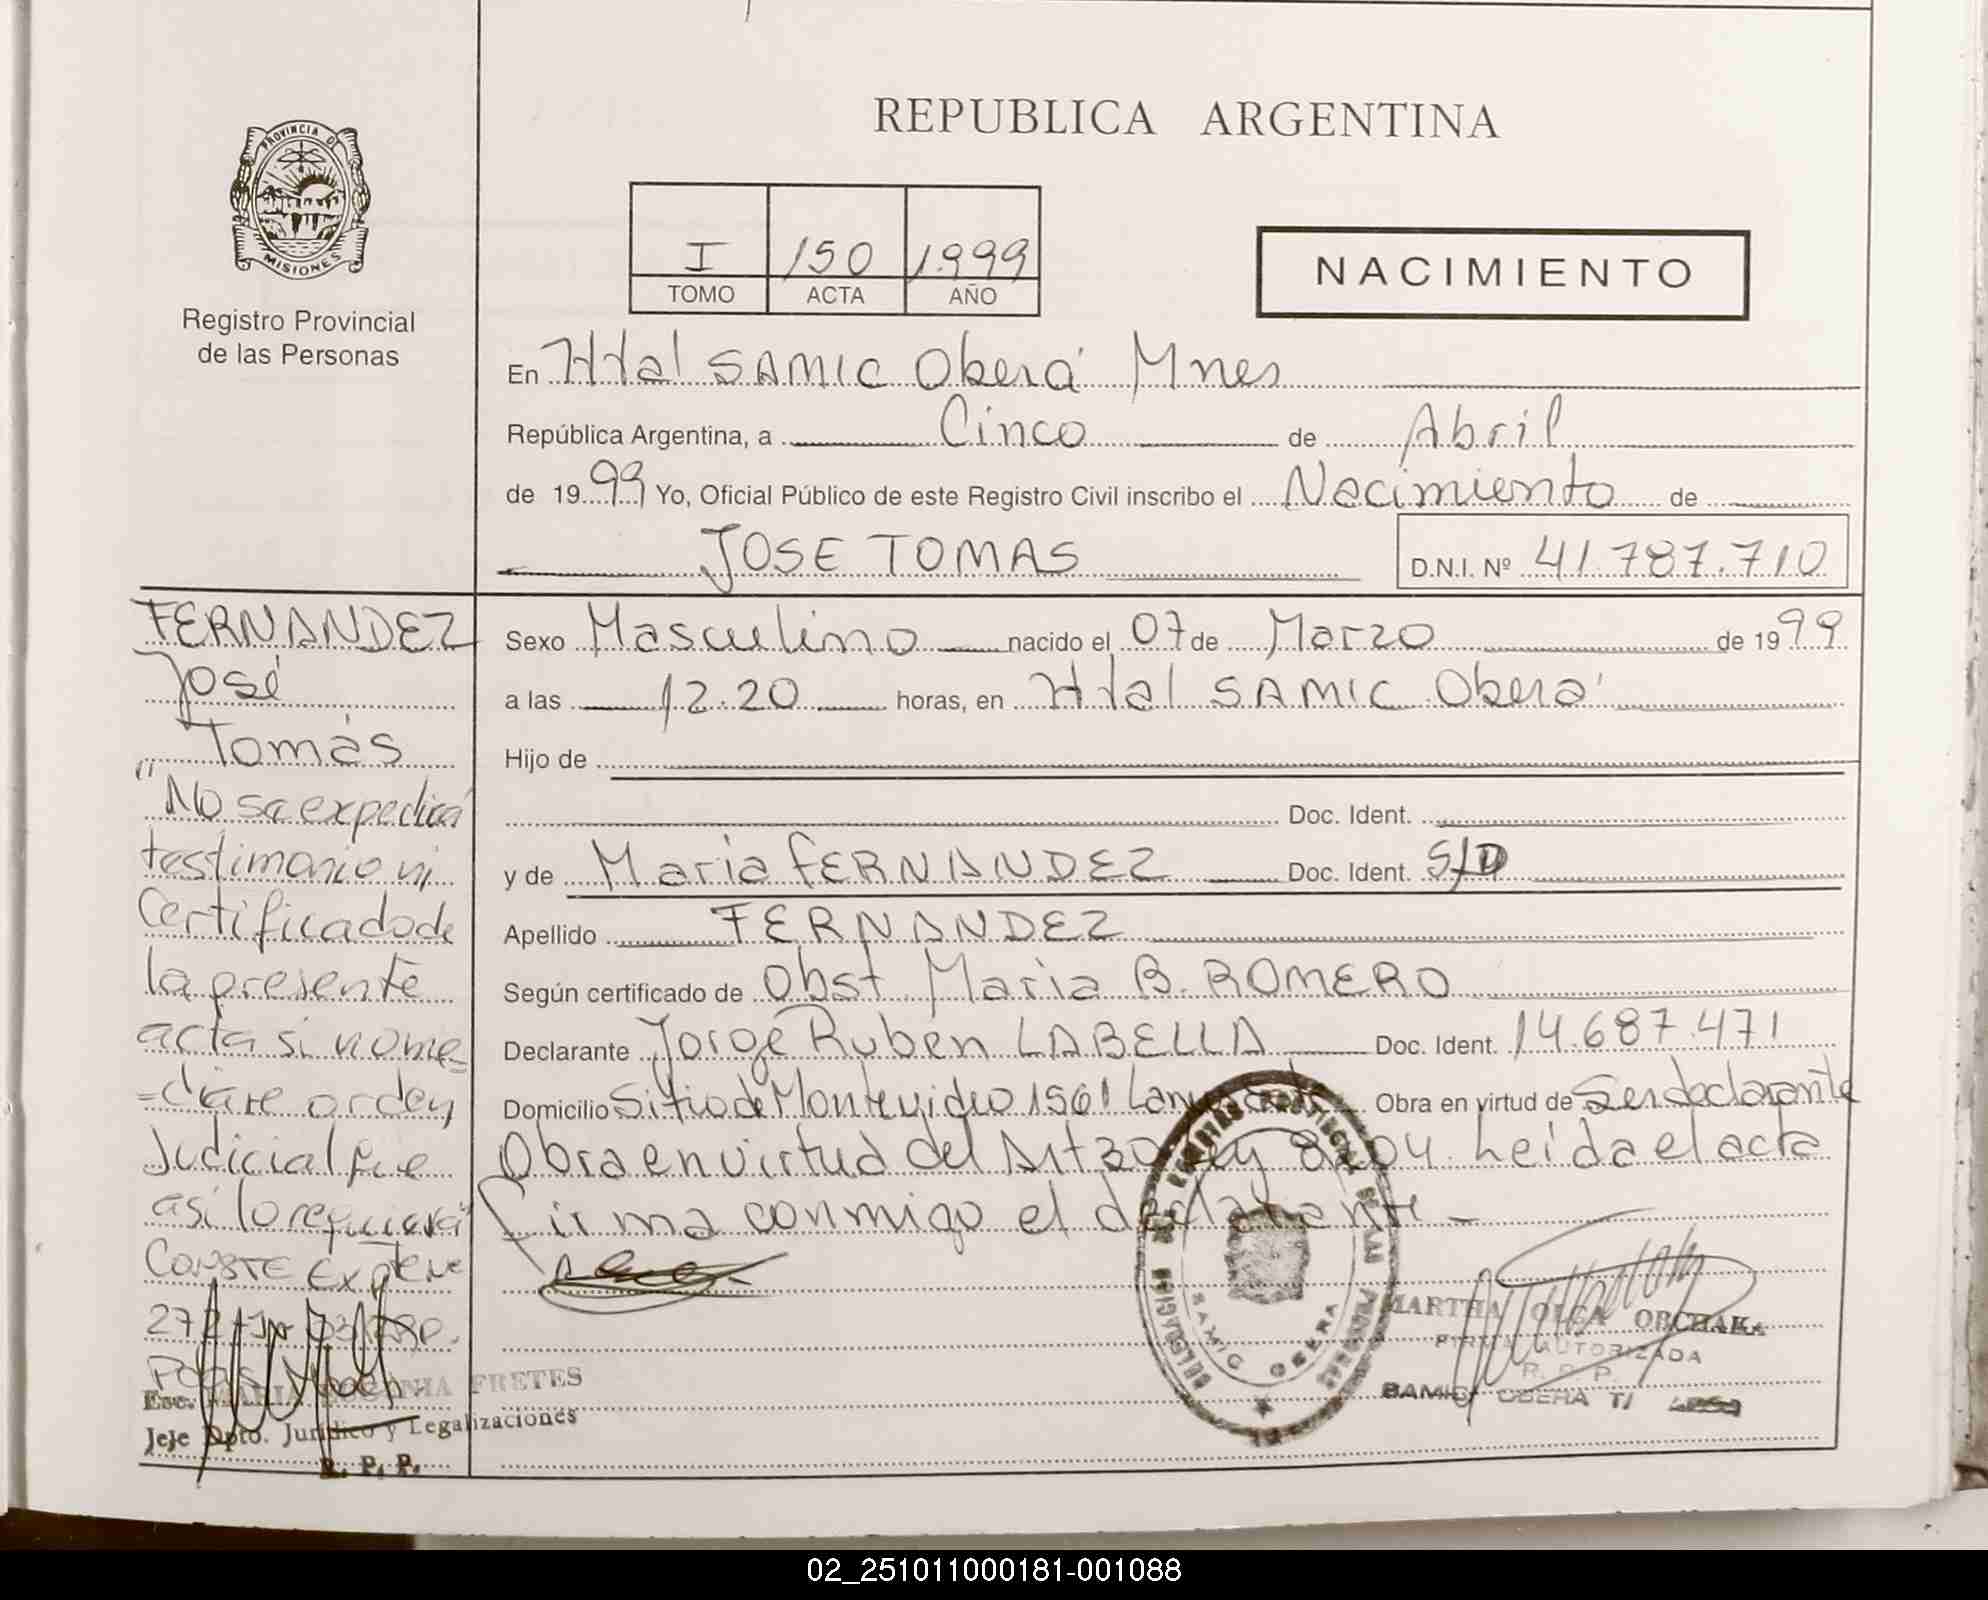 PROVINCIA DE
MISIONES
Registro Provincial
de las Personas
REPUBLICA ARGENTINA
I 150 1.999
TOMO ACTA AÑO
NACIMIENTO
En Htal SAMIC Oberá Mnes
República Argentina, a Cinco de Abril
de 1999 Yo, Oficial Público de este Registro Civil inscribo el Nacimiento de
JOSE TOMAS D.N.I. Nº 41.787.710
FERNANDEZ
José
Tomás
"No se expedirá
testimonio ni
Certificado de
la presente
acta si no me=
=diare orden
Judicial que
así lo requiera"
CONSTE Expte Nº
Esc. MARIA FRETES
Jefe Dpto. Jurídico y Legalizaciones
R. P. P.
Sexo Masculino nacido el 07 de Marzo de 1999
a las 12.20 horas, en Htal SAMIC Oberá
Hijo de
Doc. Ident.
y de Maria FERNANDEZ Doc. Ident. S/D
Apellido FERNANDEZ
Según certificado de Obst Maria B. ROMERO
Declarante Jorge Rubén LABELLA Doc. Ident. 14.687.471
Domicilio Sitio de Montevideo 1561 Obra en virtud de Ser declarante
Obra en virtud del Art 30 Ley 8204. Leída el acta
firma conmigo el declarante -
MARTHA OLGA OBCHAKA
FIRMA AUTORIZADA
R. P. P.
SAMIC OBERA
SAMIC OBERA
02_251011000181-001088